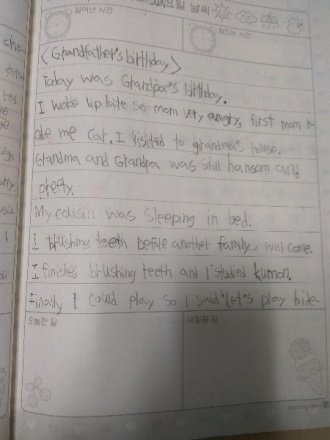 요일 날씨
일어난 시간
잠드는 시간
<Grandfather's birthday>
Today was Grandpa's birthday.
I woke up late so mom very angry, first mom
me car. I visited to grandma's house.
Grandma and Grandpa was still hansom and
pretty.
My cousin was sleeping in bed.
I blushing teeth before another family will come.
I finishes blushing teeth and I studied kumon.
Finally I could play so I said "Let's play hide-
오늘한 일
내일할 일